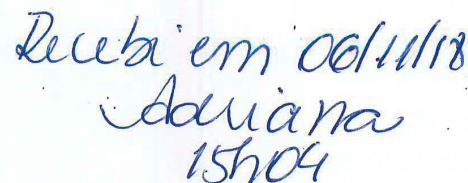 Recebi em 06/11/18
Adriana
15h04